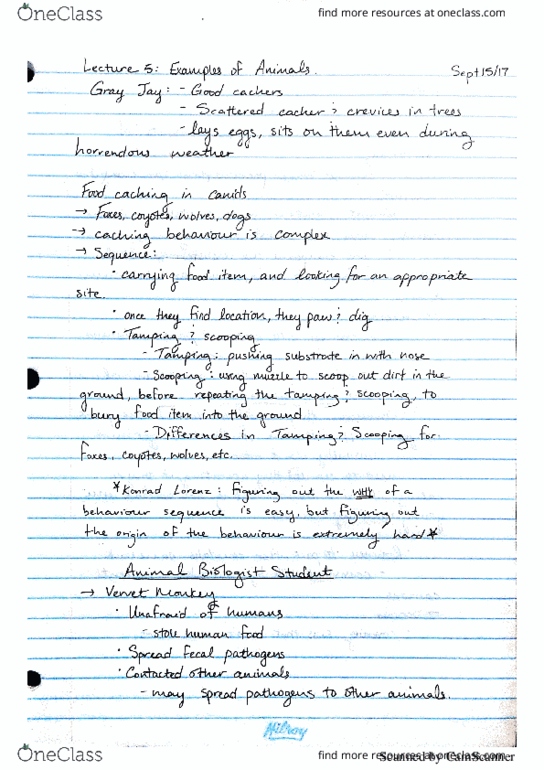 OneClass find more resources at oneclass.com
Lecture 5: Examples of Animals. Sept 15/17
Gray Jay: - Good cachers
- Scattered cacher & crevices in trees
- lays eggs, sits on them even during
horrendous weather
Food caching in canids
→ Foxes, coyotes, wolves, dogs
→ caching behaviour is complex
→ Sequence:
• carrying food item, and looking for an appropriate
site.
• once they find location, they paw & dig
• Tamping & scooping
- Tamping: pushing substrate in with nose
- Scooping: using muzzle to scoop out dirt in the
ground, before repeating the tamping & scooping, to
bury food item into the ground
- Differences in Tamping & Scooping for
Foxes, coyotes, wolves, etc.
*Konrad Lorenz: Figuring out the WHY of a
behaviour sequence is easy, but figuring out
the origin of the behaviour is extremely hard*
Animal Biologist Student
→ Vervet Monkey
• Unafraid of humans
- stole human food
• Spread fecal pathogens
• Contacted other animals
- may spread pathogens to other animals.
Hilroy
OneClass find more resources at oneclass.com
Scanned by CamScanner